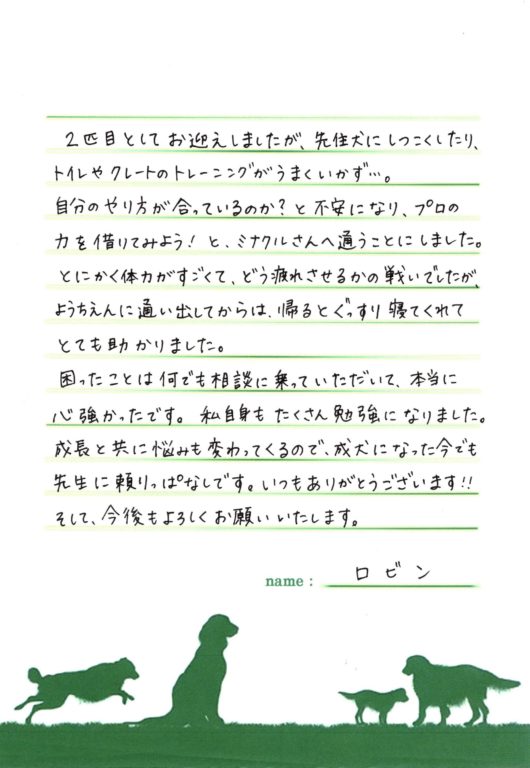 2匹目としてお迎えしましたが、先住犬にしつこくしたり、
トイレやクレートのトレーニングがうまくいかず…。
自分のやり方が合っているのか?と不安になり、プロの
力を借りてみよう!と、ミナクルさんへ通うことにしました。
とにかく体力がすごくて、どう疲れさせるかの戦いでしたが、
ようちえんに通い出してからは、帰るとぐっすり寝てくれて
とても助かりました。
困ったことは何でも相談に乗っていただいて、本当に
心強かったです。私自身もたくさん勉強になりました。
成長と共に悩みも変わってくるので、成犬になった今でも
先生に頼りっぱなしです。いつもありがとうございます!!
そして、今後もよろしくお願いいたします。
name : ロビン